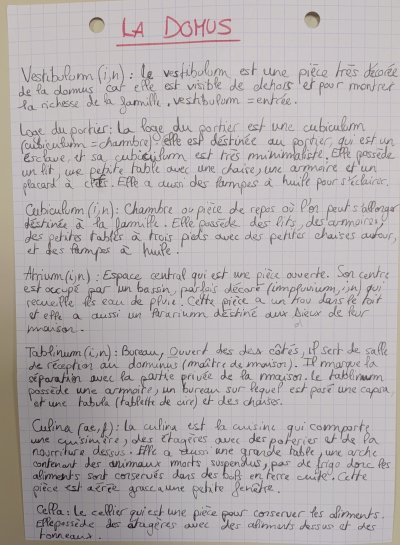 LA DOMUS
Vestibulum (i,n) : le vestibulum est une pièce très décorée
de la domus car elle est visible de dehors et pour montrer
la richesse de la famille. vestibulum = entrée.
Loge du portier : La loge du portier est une cubiculum
(cubiculum = chambre) elle est destinée au portier, qui est un
esclave, et sa cubiculum est très minimaliste. Elle possède
un lit, une petite table avec une chaise, une armoire et un
placard à clé. Elle a aussi des lampes à huile pour s'éclairer.
Cubiculum (i,n) : Chambre ou pièce de repos où l'on peut s'allonger
destinée à la famille. Elle possède des lits, des armoires,
des petites tables à trois pieds avec des petites chaises autour,
et des lampes à huile.
Atrium (i,n) : Espace central qui est une pièce ouverte. Son centre
est occupé par un bassin, parfois décoré (impluvium, i,n) qui
recueille les eau de pluie. Cette pièce a un trou dans le toit
et elle a aussi un lararium destiné aux dieux de leur
maison.
Tablinum (i,n) : Bureau, Ouvert des deux côtés, il sert de salle
de réception au dominus (maître de maison). Il marque la
séparation avec la partie privée de la maison. Le tablinum
possède une armoire, un bureau sur lequel est posé une capsa
et une tabula (tablette de cire) et des chaises.
Culina (ae,f) : La culina est la cuisine qui comporte
une cuisinière, des étagères avec des poteries et de la
nourriture dessus. Elle a aussi une grande table, une arche
contenant des animaux morts suspendus, pas de frigo donc les
aliments sont conservés dans des bols en terre cuite. Cette
pièce est aérée grace a une petite fenêtre.
Cella : Le cellier qui est une pièce pour conserver les aliments.
Elle possède des étagères avec des aliments dessus et des
tonneaux.